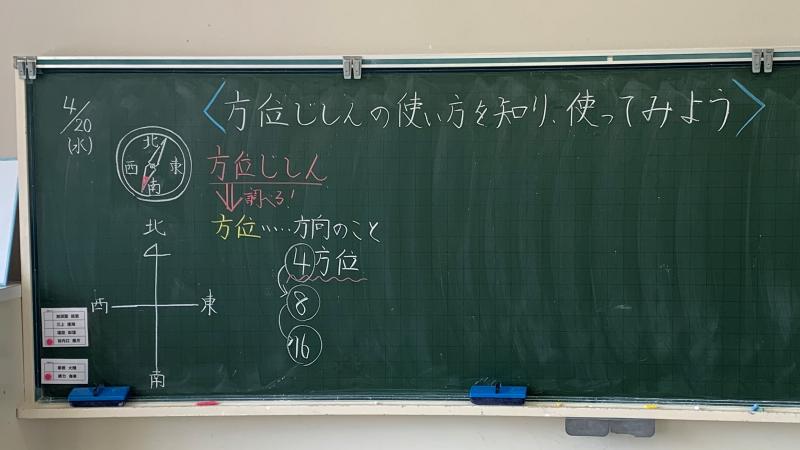 4/20
(水)
〈方位じしんの使い方を知り、使ってみよう〉
北
西 東
南
方位じしん
調べる!
方位……方向のこと
4方位
8
16
北
西 東
南